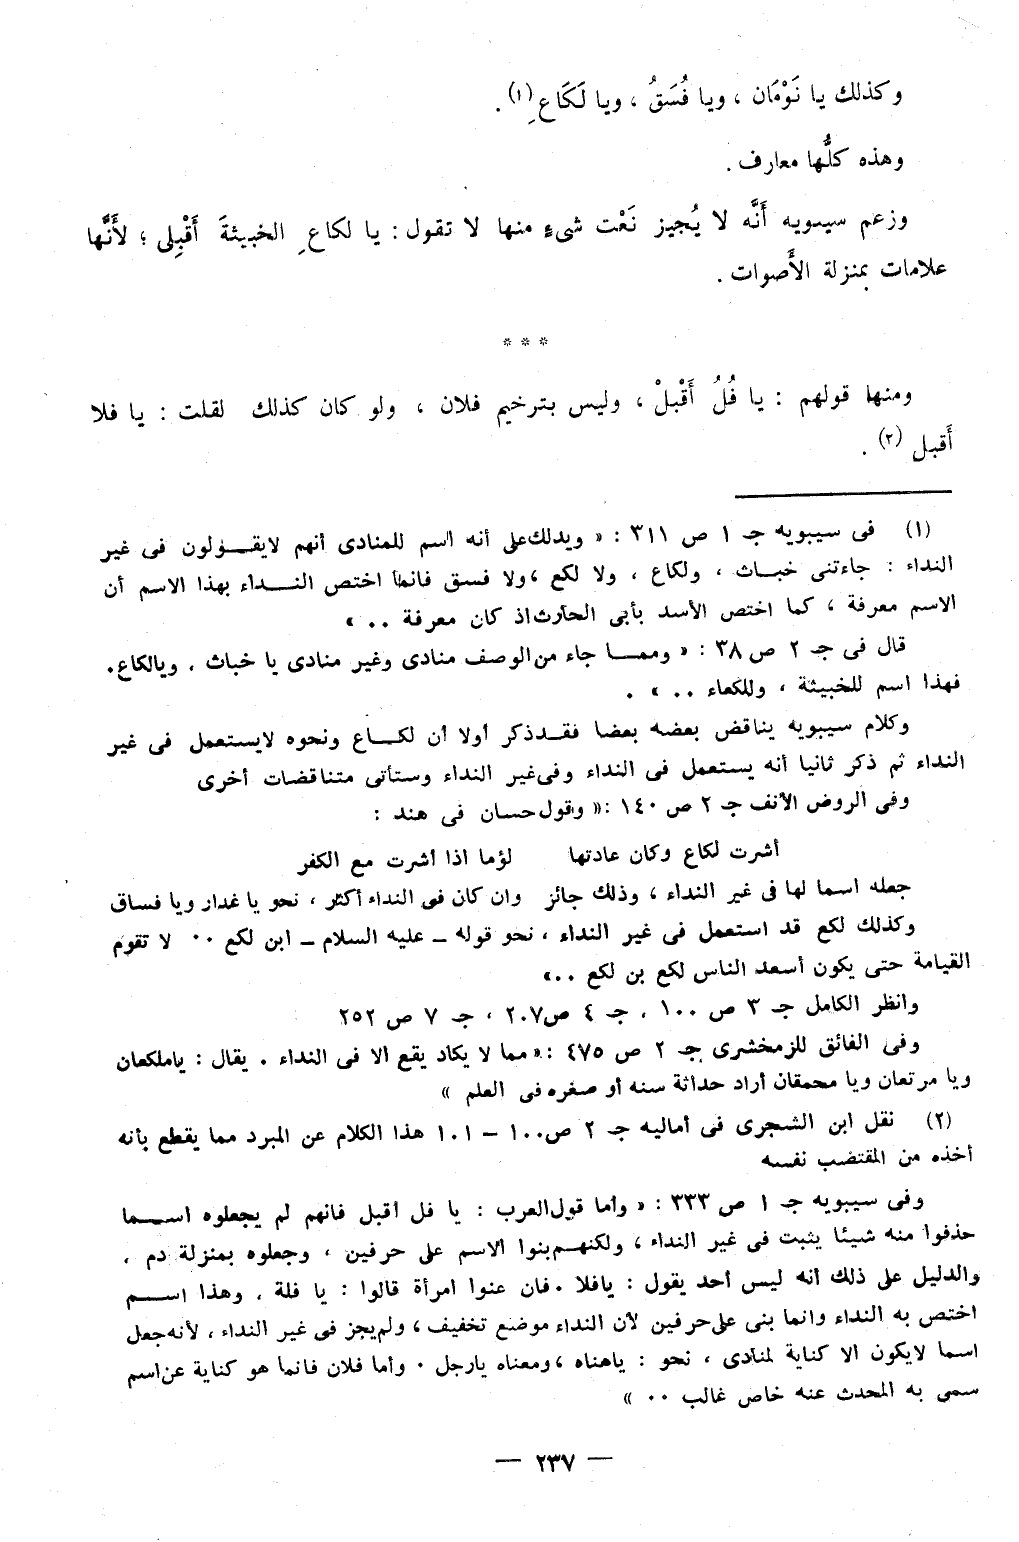 وكذلك يا نَوْمَان ، ويا فُسَقُ ، ويا لَكَاعِ (١) .
وهذه كلُّها معارف .
وزعم سيبويه أَنَّه لا يُجيز نَعْت شىءٍ منها لا تقول : يا لكاعِ الخبيثةَ أَقْبِلى ؛ لأَنَّها
علامات بمنزلة الأَصوات .
* * *
ومنها قولهم : يا فُلُ أَقْبلْ ، وليس بترخيم فلان ، ولو كان كذلك لقلت : يا فلا
أَقبل (٢) .
(١) فى سيبويه جـ ١ ص ٣١١ : « ويدلك على أنه اسم للمنادى أنهم لايقـولون فى غير
النداء : جاءتنى خبـاث ، ولكاع ، ولا لكع ، ولا فسق فانما اختص النـداء بهذا الاسم أن
الاسم معرفة ، كما اختص الأسد بأبى الحارث اذ كان معرفة .. »
قال فى جـ ٢ ص ٣٨ : « وممـا جاء من الوصف منادى وغير منادى يا خباث ، ويالكاع .
فهذا اسم للخبيثة ، وللكعاء .. » .
وكلام سيبويه يناقض بعضه بعضا فقـد ذكر أولا أن لكـاع ونحوه لايستعمل فى غير
النداء ثم ذكر ثانيا أنه يستعمل فى النداء وفى غير النداء وستأتى متناقضات أخرى
وفى الروض الأنف جـ ٢ ص ١٤٠ : « وقول حسان فى هند :
أشرت لكاع وكان عادتها لؤما اذا أشرت مع الكفر
جعله اسما لها فى غير النداء ، وذلك جائز وان كان فى النداء أكثر ، نحو يا غدار ويا فساق
وكذلك لكع قد استعمل فى غير النداء ، نحو قوله ـ عليه السلام ـ ابن لكع .. لا تقوم
القيامة حتى يكون أسعد الناس لكع بن لكع .. »
وانظر الكامل جـ ٣ ص ١٠٠ ، جـ ٤ ص ٢٠٧ ، جـ ٧ ص ٢٥٢
وفى الفائق للزمخشرى جـ ٢ ص ٤٧٥ : « مما لا يكاد يقع الا فى النداء . يقال : ياملكعان
ويا مرتعان ويا محمقان أراد حداثة سنه أو صغره فى العلم »
(٢) نقل ابن الشجرى فى أماليه جـ ٢ ص ١٠٠ ـ ١٠١ هذا الكلام عن المبرد مما يقطع بأنه
أخذه من المقتضب نفسه
وفى سيبويه جـ ١ ص ٣٣٣ : « وأما قول العرب : يا فل أقبل فانهم لم يجعلوه اسـما
حذفوا منه شيئا يثبت فى غير النداء ، ولكنهـم بنوا الاسم على حرفين ، وجعلوه بمنزلة دم ،
والدليل على ذلك أنه ليس أحد يقول : يافلا . فان عنوا امرأة قالوا : يا فلة ، وهذا اسـم
اختص به النداء وانما بنى على حرفين لأن النداء موضع تخفيف ، ولم يجز فى غير النداء ، لأنه جعل
اسما لايكون الا كناية لمنادى ، نحو : ياهناه ، ومعناه يارجل . وأما فلان فانما هو كناية عن اسم
سمى به المحدث عنه خاص غالب .. »
— ٢٣٧ —